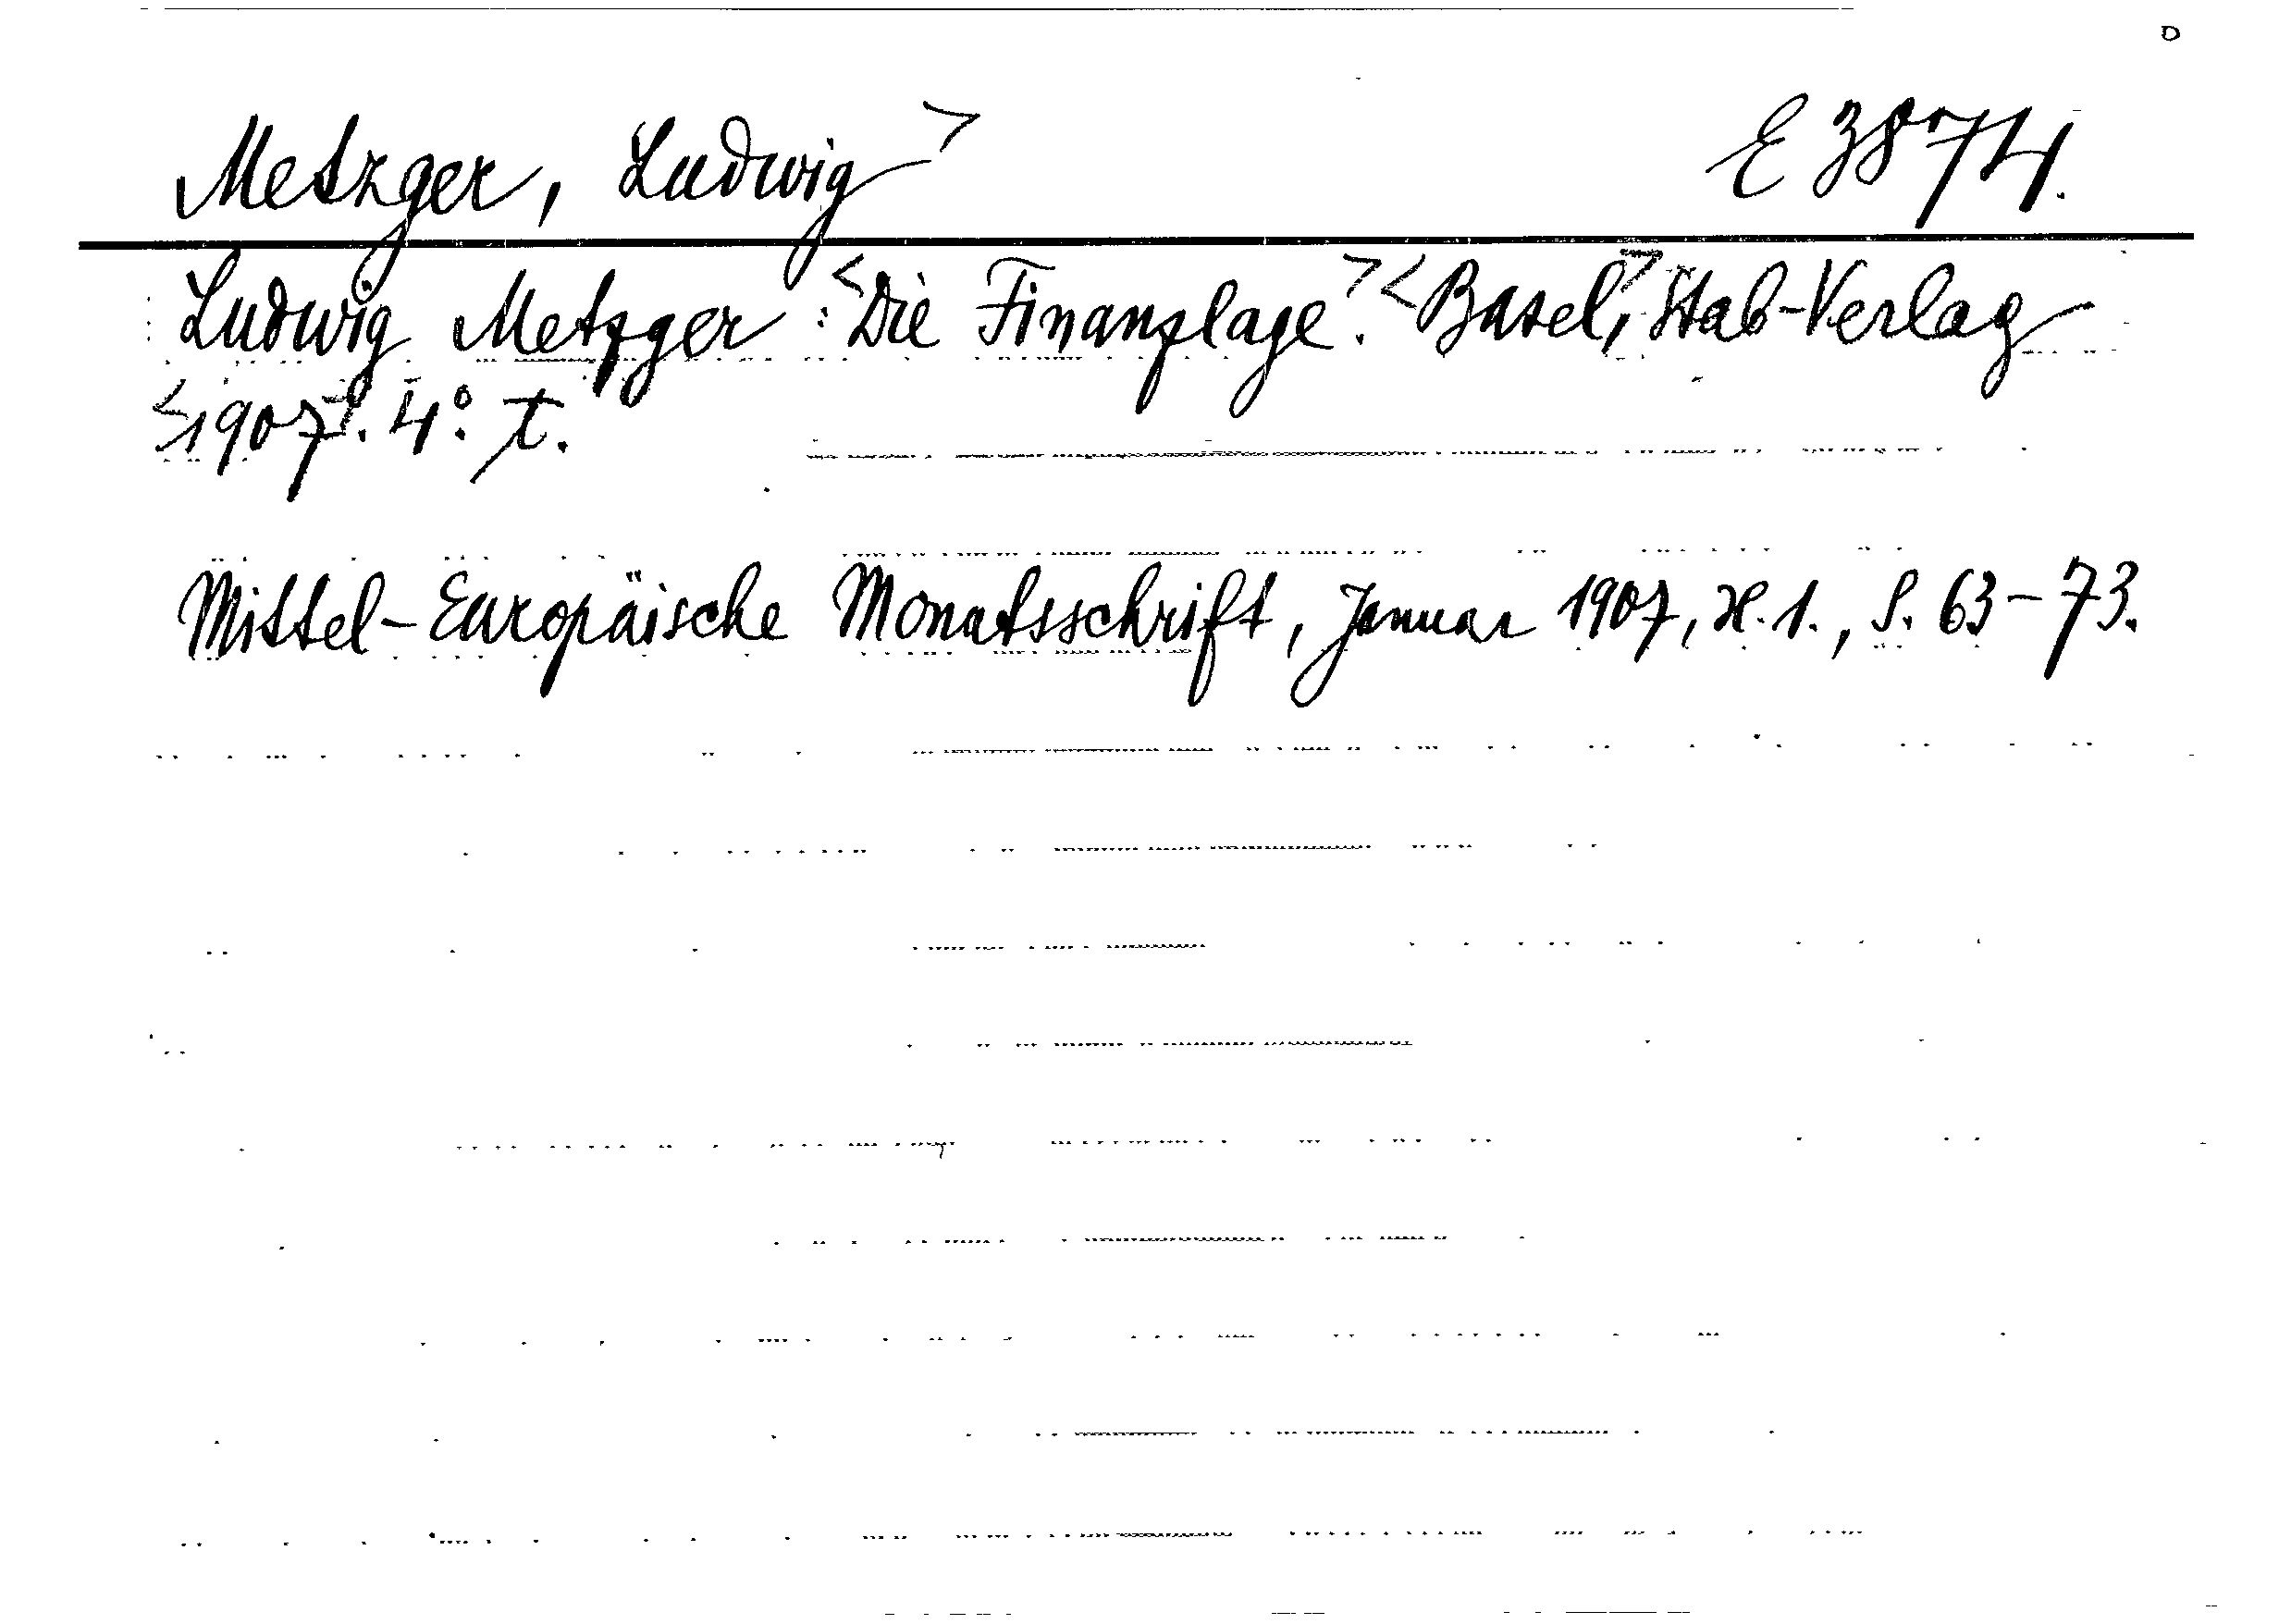 Metzger, Ludwig> E 3874.
Ludwig Metzger: <Die Finanzlage.> <Basel,> Stab-Verlag
<1907>. 4°. t.
Mittel-Europäische Monatsschrift, Januar 1907, H. 1., S. 63-73.